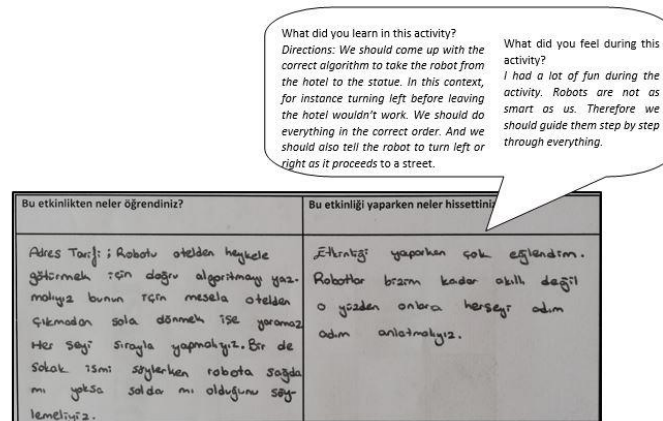 What did you learn in this activity?
Directions: We should come up with the
correct algorithm to take the robot from
the hotel to the statue. In this context,
for instance turning left before leaving
the hotel wouldn't work. We should do
everything in the correct order. And we
should also tell the robot to turn left or
right as it proceeds to a street.
What did you feel during this
activity?
I had a lot of fun during the
activity. Robots are not as
smart as us. Therefore we
should guide them step by step
through everything.
Bu etkinlikten neler öğrendiniz?
Adres Tarifi ; Robotu otelden heykele
götürmek için doğru algoritmayı yaz-
malıyız bunun için mesela otelden
çıkmadan sola dönmek işe yaramaz
Her şeyi sırayla yapmalıyız. Bir de
sokak ismi söylerken robota sağda
mı yoksa solda mı olduğunu söy-
lemeliyiz.
Bu etkinliği yaparken neler hissettiniz
Etkinliği yaparken çok eğlendim.
Robotlar bizim kadar akıllı değil
o yüzden onlara herşeyi adım
adım anlatmalıyız.